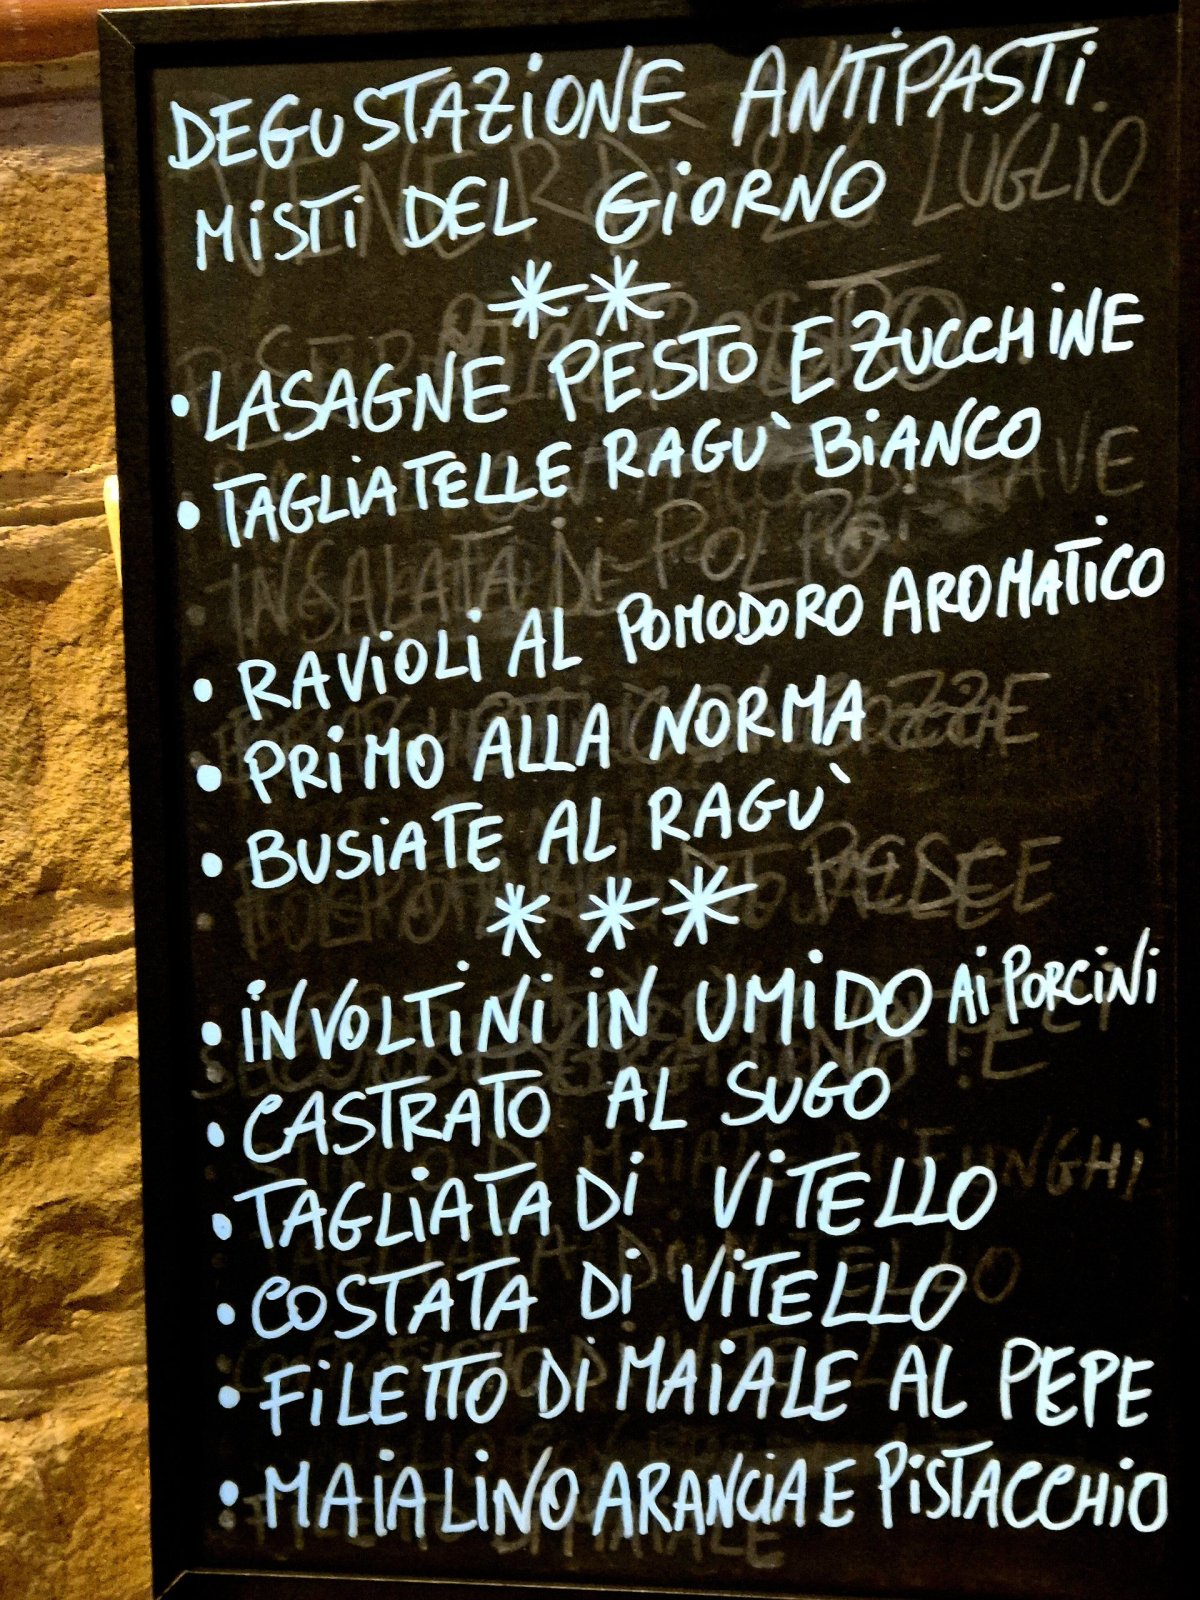 DEGUSTAZIONE ANTIPASTI
MISTI DEL GIORNO
LUGLIO
**
• LASAGNE PESTO E ZUCCHINE
• TAGLIATELLE RAGU' BIANCO
INSALATA DI POLPO
• RAVIOLI AL POMODORO AROMATICO
• PRIMO ALLA NORMA
• BUSIATE AL RAGU'
***
• INVOLTINI IN UMIDO AI PORCINI
• CASTRATO AL SUGO
• TAGLIATA DI VITELLO
• COSTATA DI VITELLO
• FILETTO DI MAIALE AL PEPE
• MAIALINO ARANCIA E PISTACCHIO